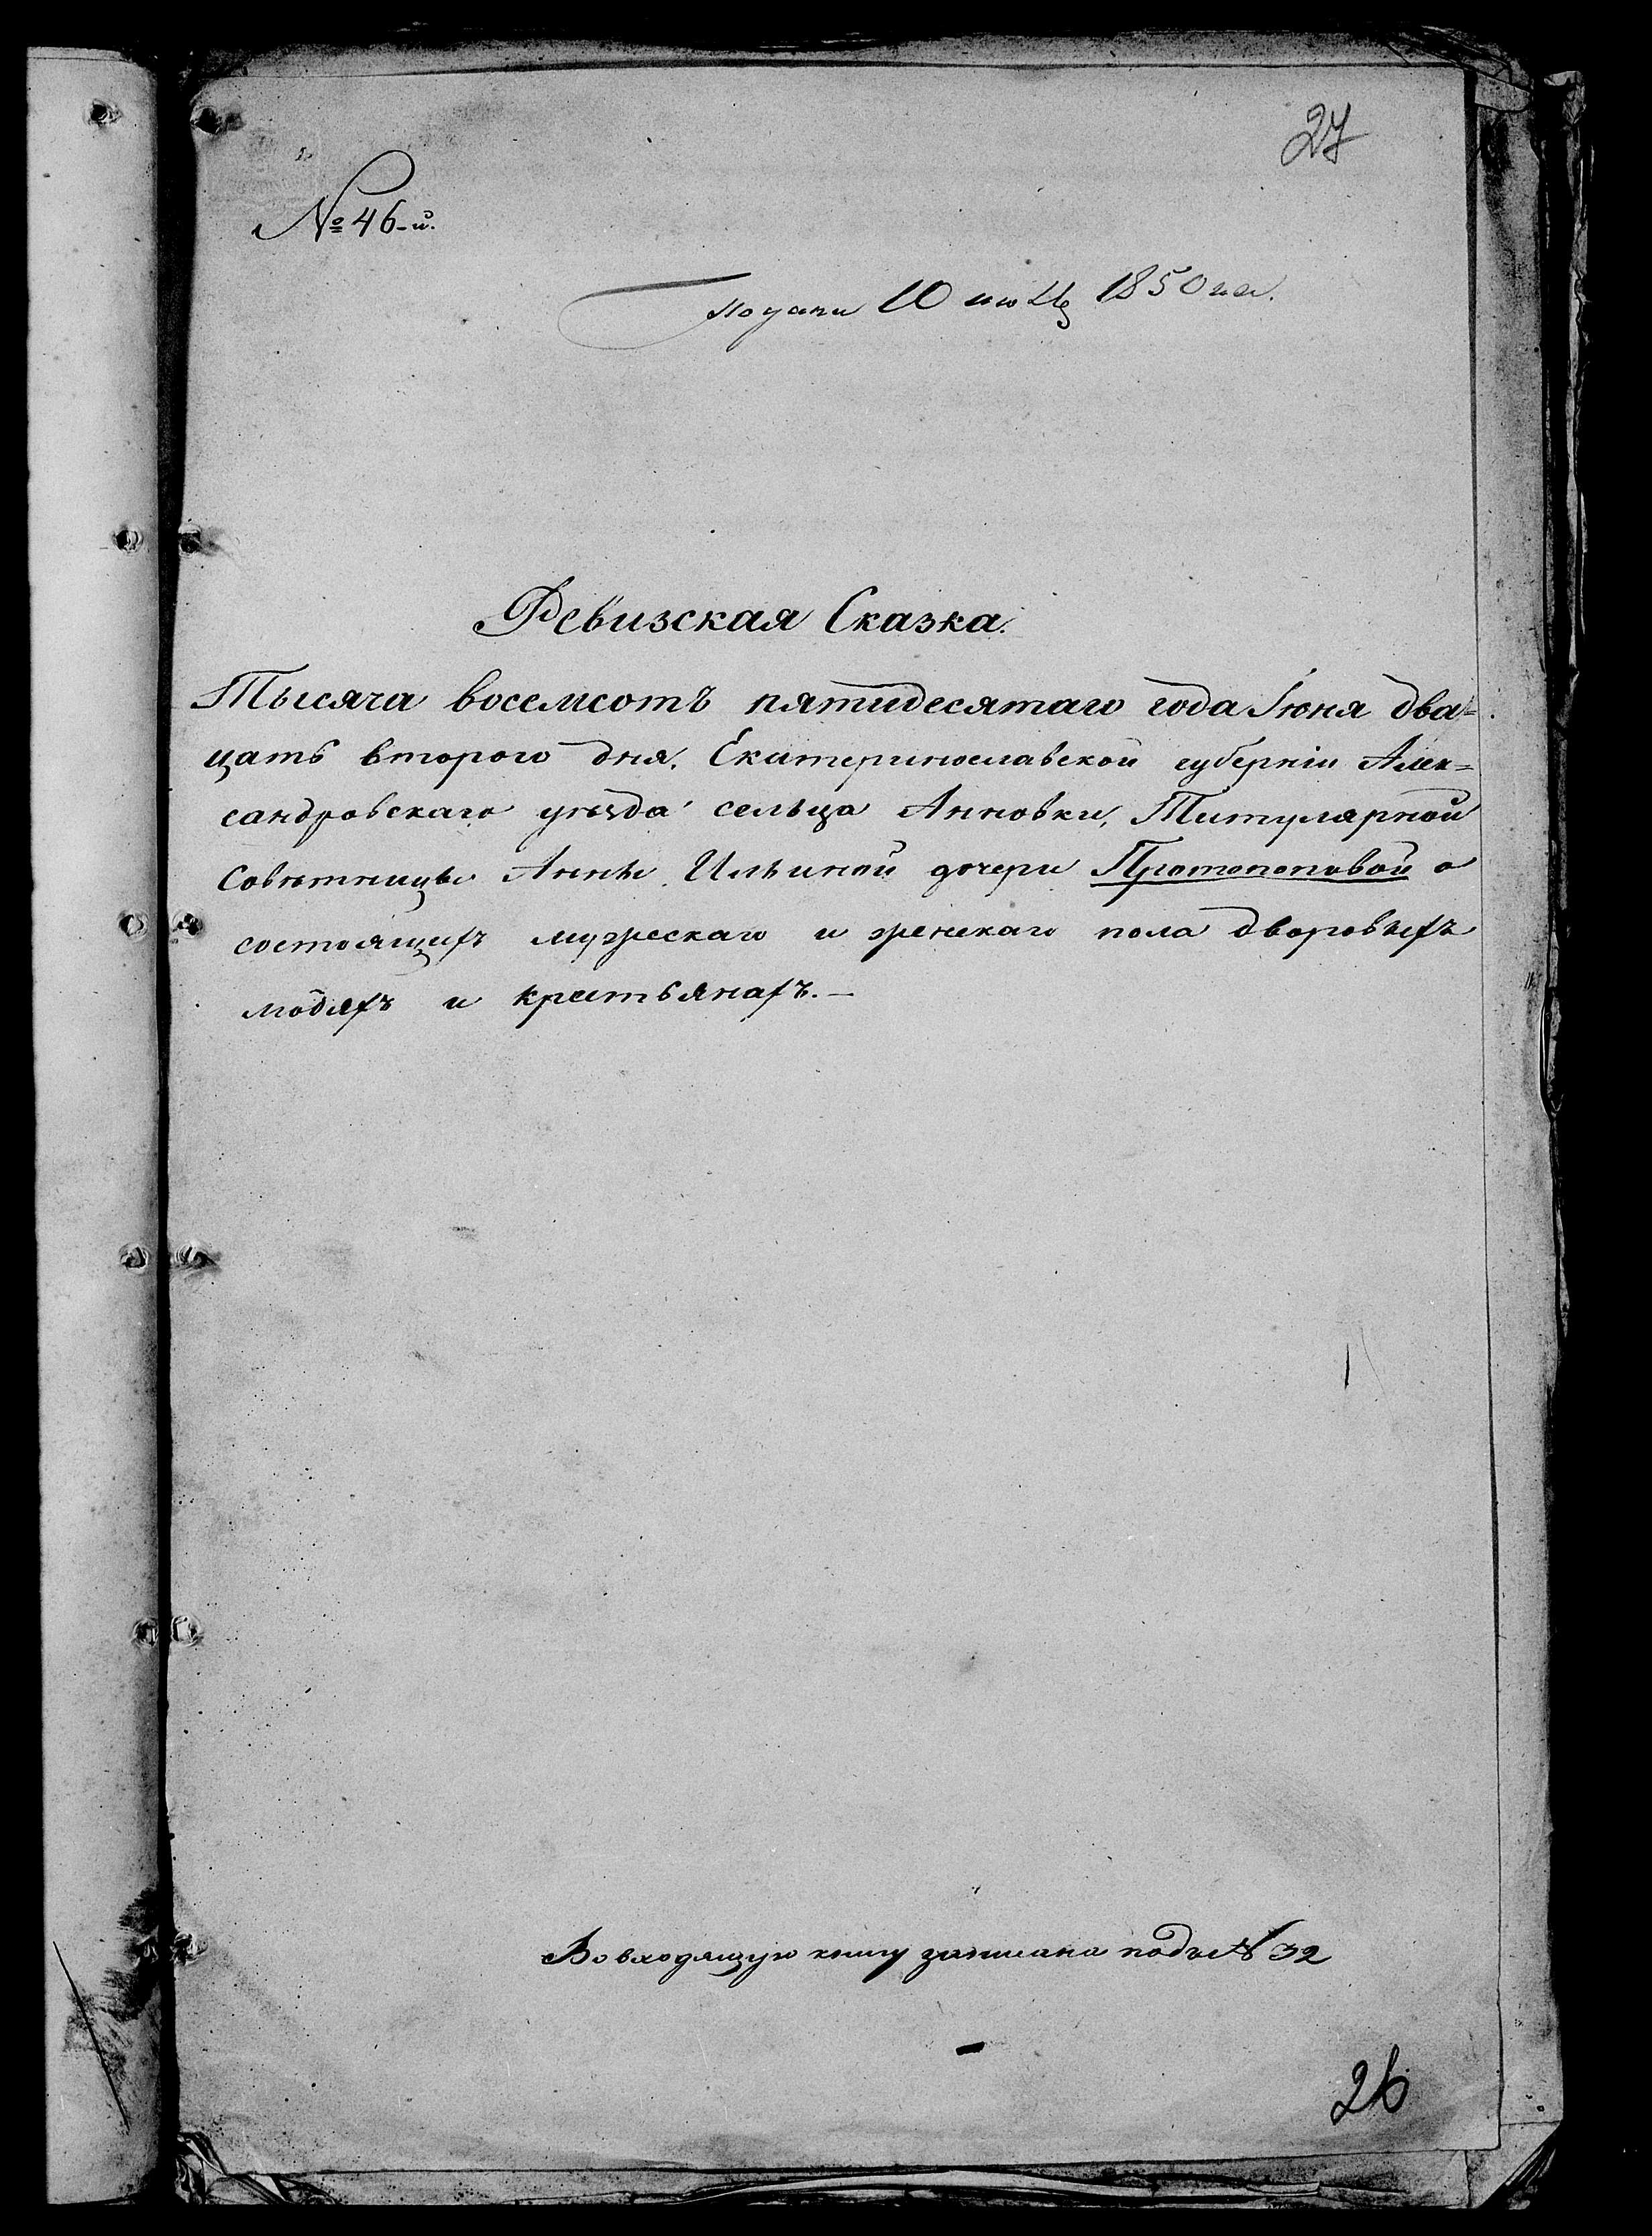 27
№ 46-й.
Подана 10 июля 1850 г.
Ревизская Сказка.
Тысяча восемсотъ пятидесятаго года Іюня два=
цать второго дня. Екатеринославской губерніи Алек=
сандровскаго уѣзда сельца Анновки, Титулярной
Совѣтницы Анны Ильиной дочери Протопоповой о
состоящихъ мужескаго и женскаго пола дворовыхъ
людяхъ и крестьянахъ. —
Во входящую книгу записана подъ № 32
26